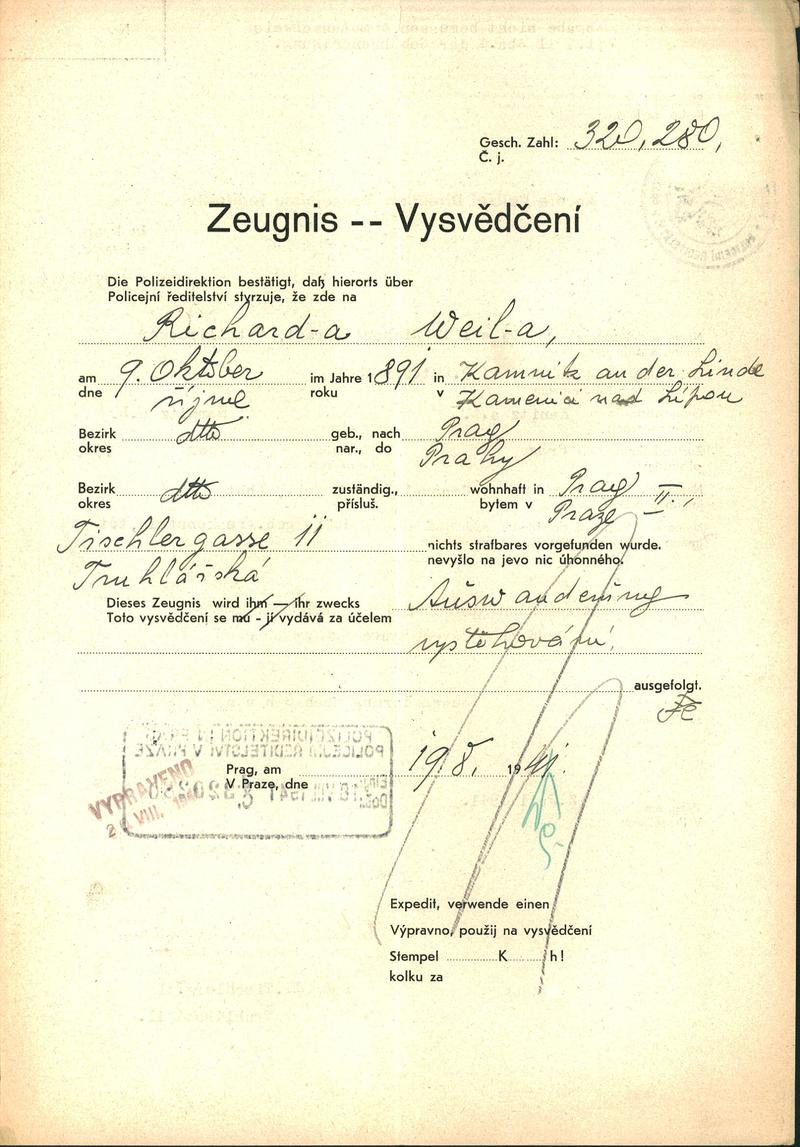 Gesch. Zahl: 320,280,
Č. j.
Zeugnis -- Vysvědčení
Die Polizeidirektion bestätigt, daß hierorts über
Policejní ředitelství stvrzuje, že zde na
Richard-a Weil-a,
am 9. Oktober im Jahre 1891 in Kamnitz an der Linde
dne říjnu roku v Kamenici nad Lípou
Bezirk dtto geb., nach Prag
okres nar., do Prahy
Bezirk dtto zuständig., wohnhaft in Prag II.,
okres přísluš. bytem v Praze
Tischlergasse 11 nichts strafbares vorgefunden wurde.
Truhlářská nevyšlo na jevo nic úhonného.
Dieses Zeugnis wird ihm — ihr zwecks Auswanderung
Toto vysvědčení se mu - jí vydává za účelem
vystěhování.
ausgefolgt.
POLIZEIDIREKTION IN PRAG
POLICEJNÍ ŘEDITELSTVÍ V PRAZE
Prag, am 19. 8. 1941.
V Praze, dne
VYPRAVENO
VIII.
Expedit, verwende einen
Výpravno, použij na vysvědčení
Stempel K h!
kolku za